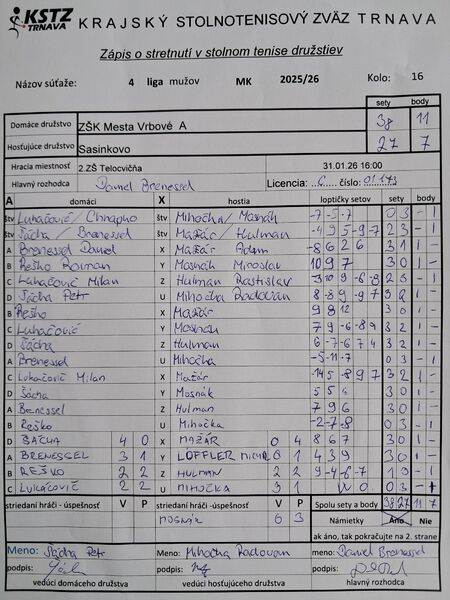 KSTZ TRNAVA KRAJSKÝ STOLNOTENISOVÝ ZVÄZ TRNAVA
Zápis o stretnutí v stolnom tenise družstiev
Názov súťaže: 4 liga mužov MK 2025/26 Kolo: 16
sety body
Domáce družstvo ZŠK Mesta Vrbové A 38 11
Hosťujúce družstvo Sasinkovo 27 7
Hracia miestnosť 2.ZŠ Telocvičňa 31.01.26 16:00
Hlavný rozhodca Daniel Brenessel Licencia: C číslo: 01173
A domáci X hostia loptičky setov sety body
štv Luhačovič/Chnapko štv Mihočka/Mosnák -7 -5 -7 0 3 - 1
štv Šácha/Brenessel štv Mažár/Hulman -4 9 5 -9 -7 2 3 - 1
A Brenessel Daniel X Mažár Adam -8 6 2 6 3 1 1
B Reško Roman Y Mosnák Miroslav 10 9 7 3 0 1 -
C Luhačovič Milan Z Hulman Rastislav -3 10 9 -6 -8 2 3 - 1
D Šácha Petr U Mihočka Radovan 8 -8 9 -9 7 3 2 1 -
B Reško X Mažár 9 8 12 3 0 1 -
C Luhačovič Y Mosnák 7 9 -6 -8 9 3 2 1 -
D Šácha Z Hulman 6 -7 -6 7 4 3 2 1 -
A Brenessel U Mihočka -5 -11 -7 0 3 - 1
C Lukačovič Milan X Mažár -14 5 -8 9 7 3 2 1 -
D Šácha Y Mosnák 5 5 4 3 0 1 -
A Brenessel Z Hulman 7 9 6 3 0 1 -
B Reško U Mihočka -2 -7 -8 0 3 - 1
D ŠÁCHA 4 0 X MAŽÁR 0 4 8 6 7 3 0 1 -
A BRENESSEL 3 1 Y LOFFLER 0 1 4 3 9 3 0 1 -
B REŠKO 2 2 Z HULMAN 2 2 9 -4 -6 -7 1 3 - 1
C LUKAČOVIČ 2 2 U MIHOČKA 3 1 W O 0 3 - 1
striedaní hráči - úspešnosť V P striedaní hráči - úspešnosť V P Spolu sety a body 38 27 11 7
MOSNÁK 0 3 Námietky Áno Nie
ak áno, tak pokračujte na 2. strane
Meno: Šácha Petr Meno: Mihočka Radovan meno: Daniel Brenessel
podpis: podpis: podpis:
vedúci domáceho družstva vedúci hosťujúceho družstva hlavný rozhodca